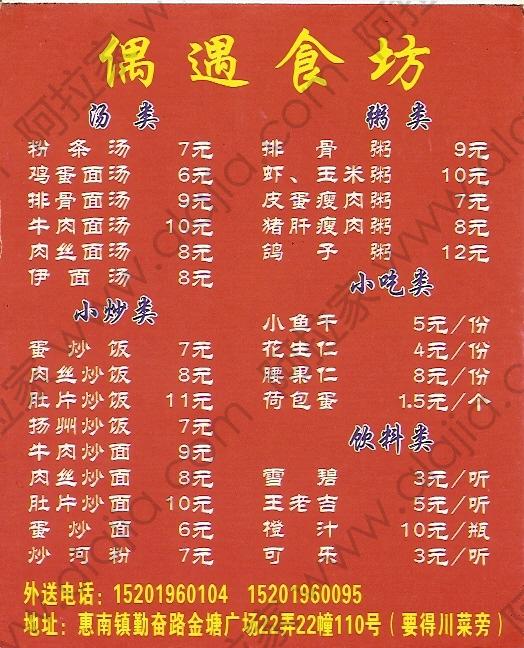 偶遇食坊
汤类
粉条汤 7元
鸡蛋面汤 6元
排骨面汤 9元
牛肉面汤 10元
肉丝面汤 8元
伊面汤 8元
小炒类
蛋炒饭 7元
肉丝炒饭 8元
肚片炒饭 11元
扬州炒饭 7元
牛肉炒面 9元
肉丝炒面 8元
肚片炒面 10元
蛋炒面 6元
炒河粉 7元
粥类
排骨粥 9元
虾、玉米粥 10元
皮蛋瘦肉粥 7元
猪肝瘦肉粥 8元
鸽子粥 12元
小吃类
小鱼干 5元/份
花生仁 4元/份
腰果仁 8元/份
荷包蛋 1.5元/个
饮料类
雪碧 3元/听
王老吉 5元/听
橙汁 10元/瓶
可乐 3元/听
外送电话：15201960104 15201960095
地址：惠南镇勤奋路金塘广场22弄22幢110号（要得川菜旁）
阿拉家 www.alajia.com